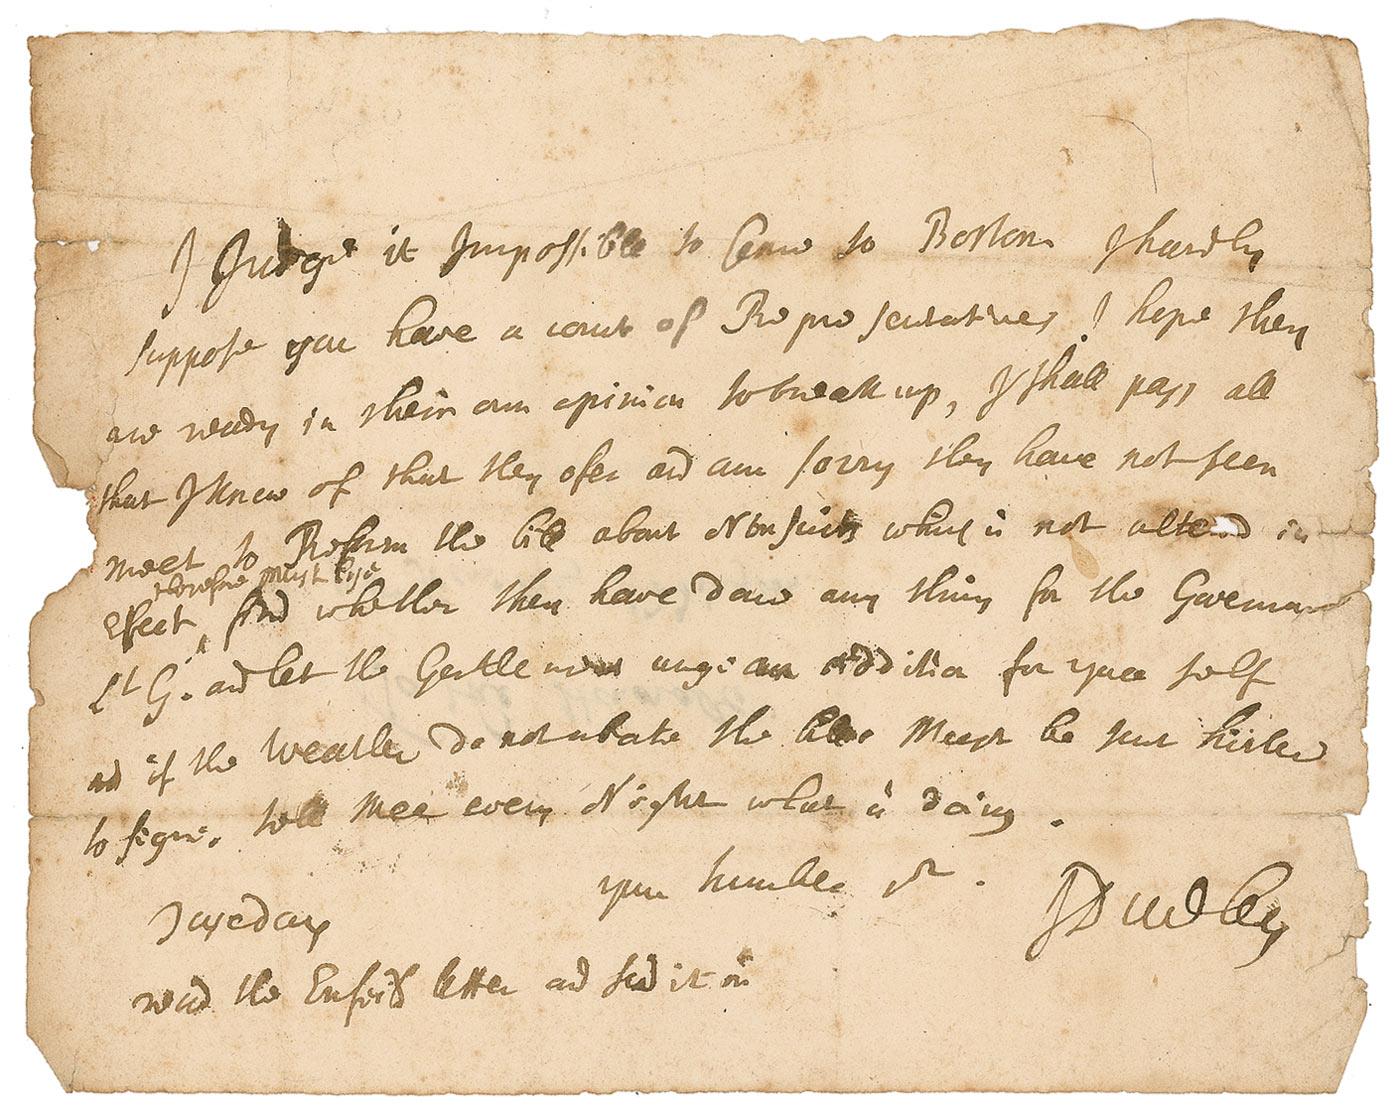 I Judge it Impossible to come to Boston I hardly
suppose you have a court of Representatives I hope they
are ready in their own opinion to break up, I shall pass all
that I knew of that they ofer and am sorry they have not seen
meet to Reform the bill about Nonsuits which is not altered in
therefore must lye
Effect, and whether they have done any thing for the Governour
Lt G. and let the Gentlemen an addition for your self
and if the weather do not abate the bills Must be sent hither
to signe. tell mee every Night what is doing.
your humble sr.
JDudley
Tuseday
read the Enfeild letter and send it on